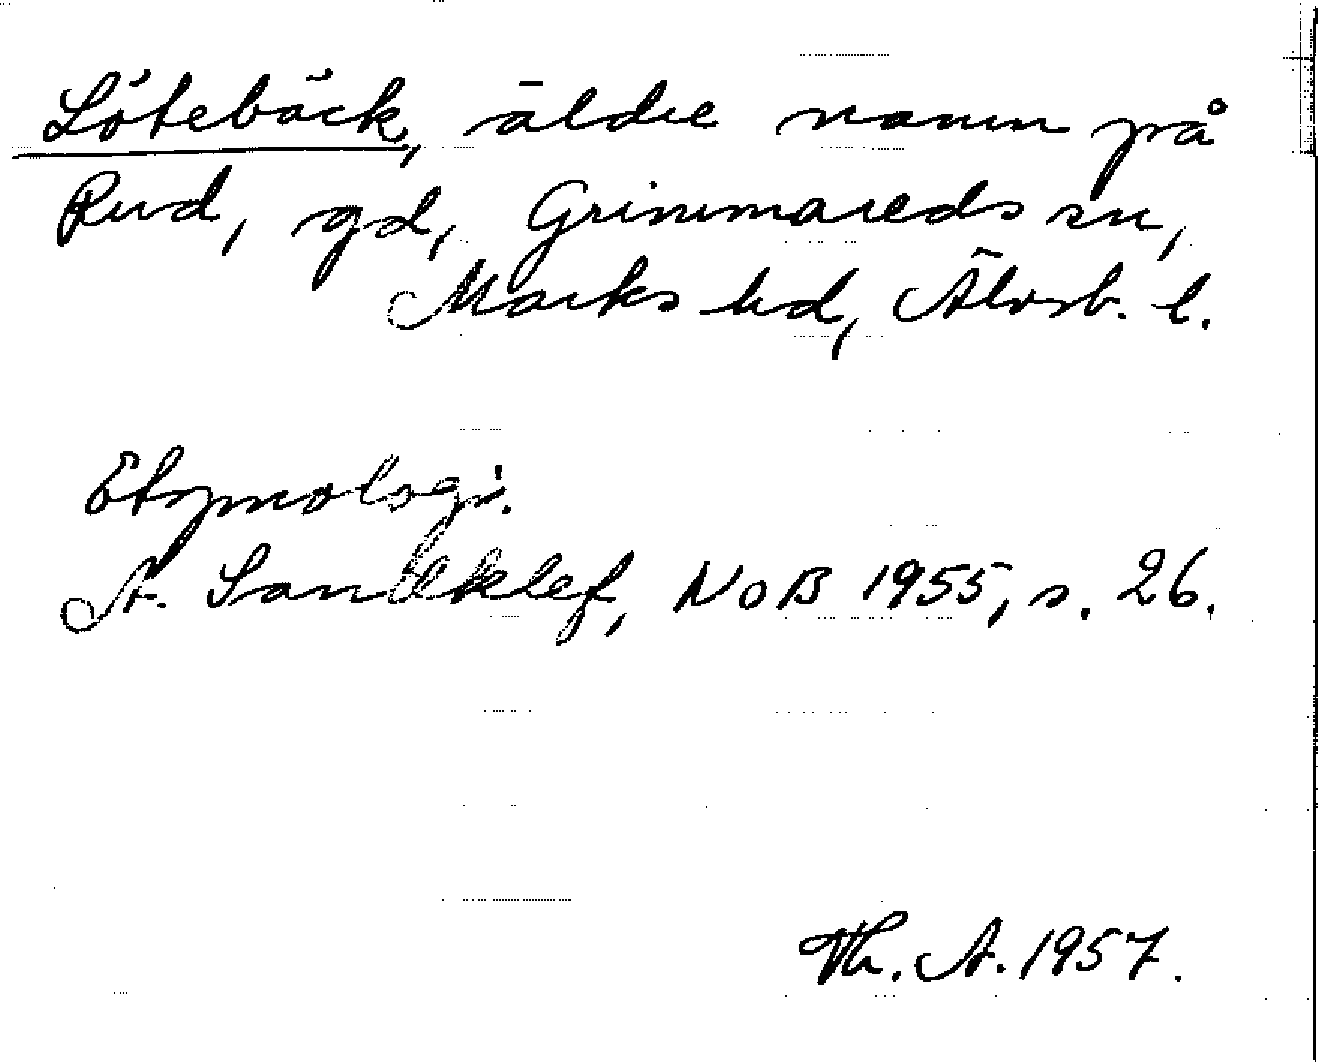 Lötebäck, äldre namn på
Rud, gd, Grimmareds sn,
Marks hd, Älvsb. l.
Etymologi.
A. Sandklef, NoB 1955, s. 26.
Th. A. 1957.